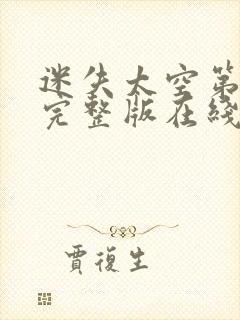 迷失太空第
完整版在綫
賈復生